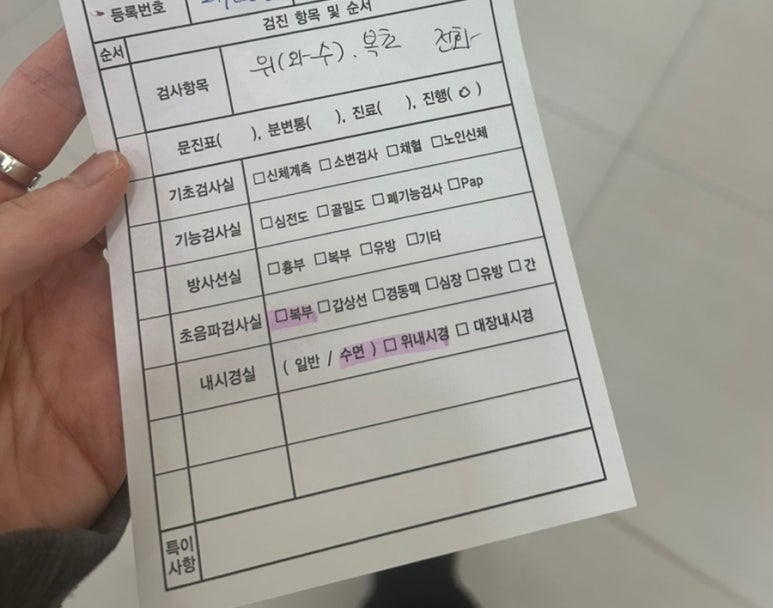 등록번호
검진 항목 및 순서
순서
검사항목 위(와수). 복초 전화
문진표( ), 분변통( ), 진료( ), 진행( o )
기초검사실 □신체계측 □소변검사 □채혈 □노인신체
기능검사실 □심전도 □골밀도 □폐기능검사 □Pap
방사선실 □흉부 □복부 □유방 □기타
초음파검사실 □복부 □갑상선 □경동맥 □심장 □유방 □간
내시경실 ( 일반 / 수면 ) □ 위내시경 □ 대장내시경
특이
사항